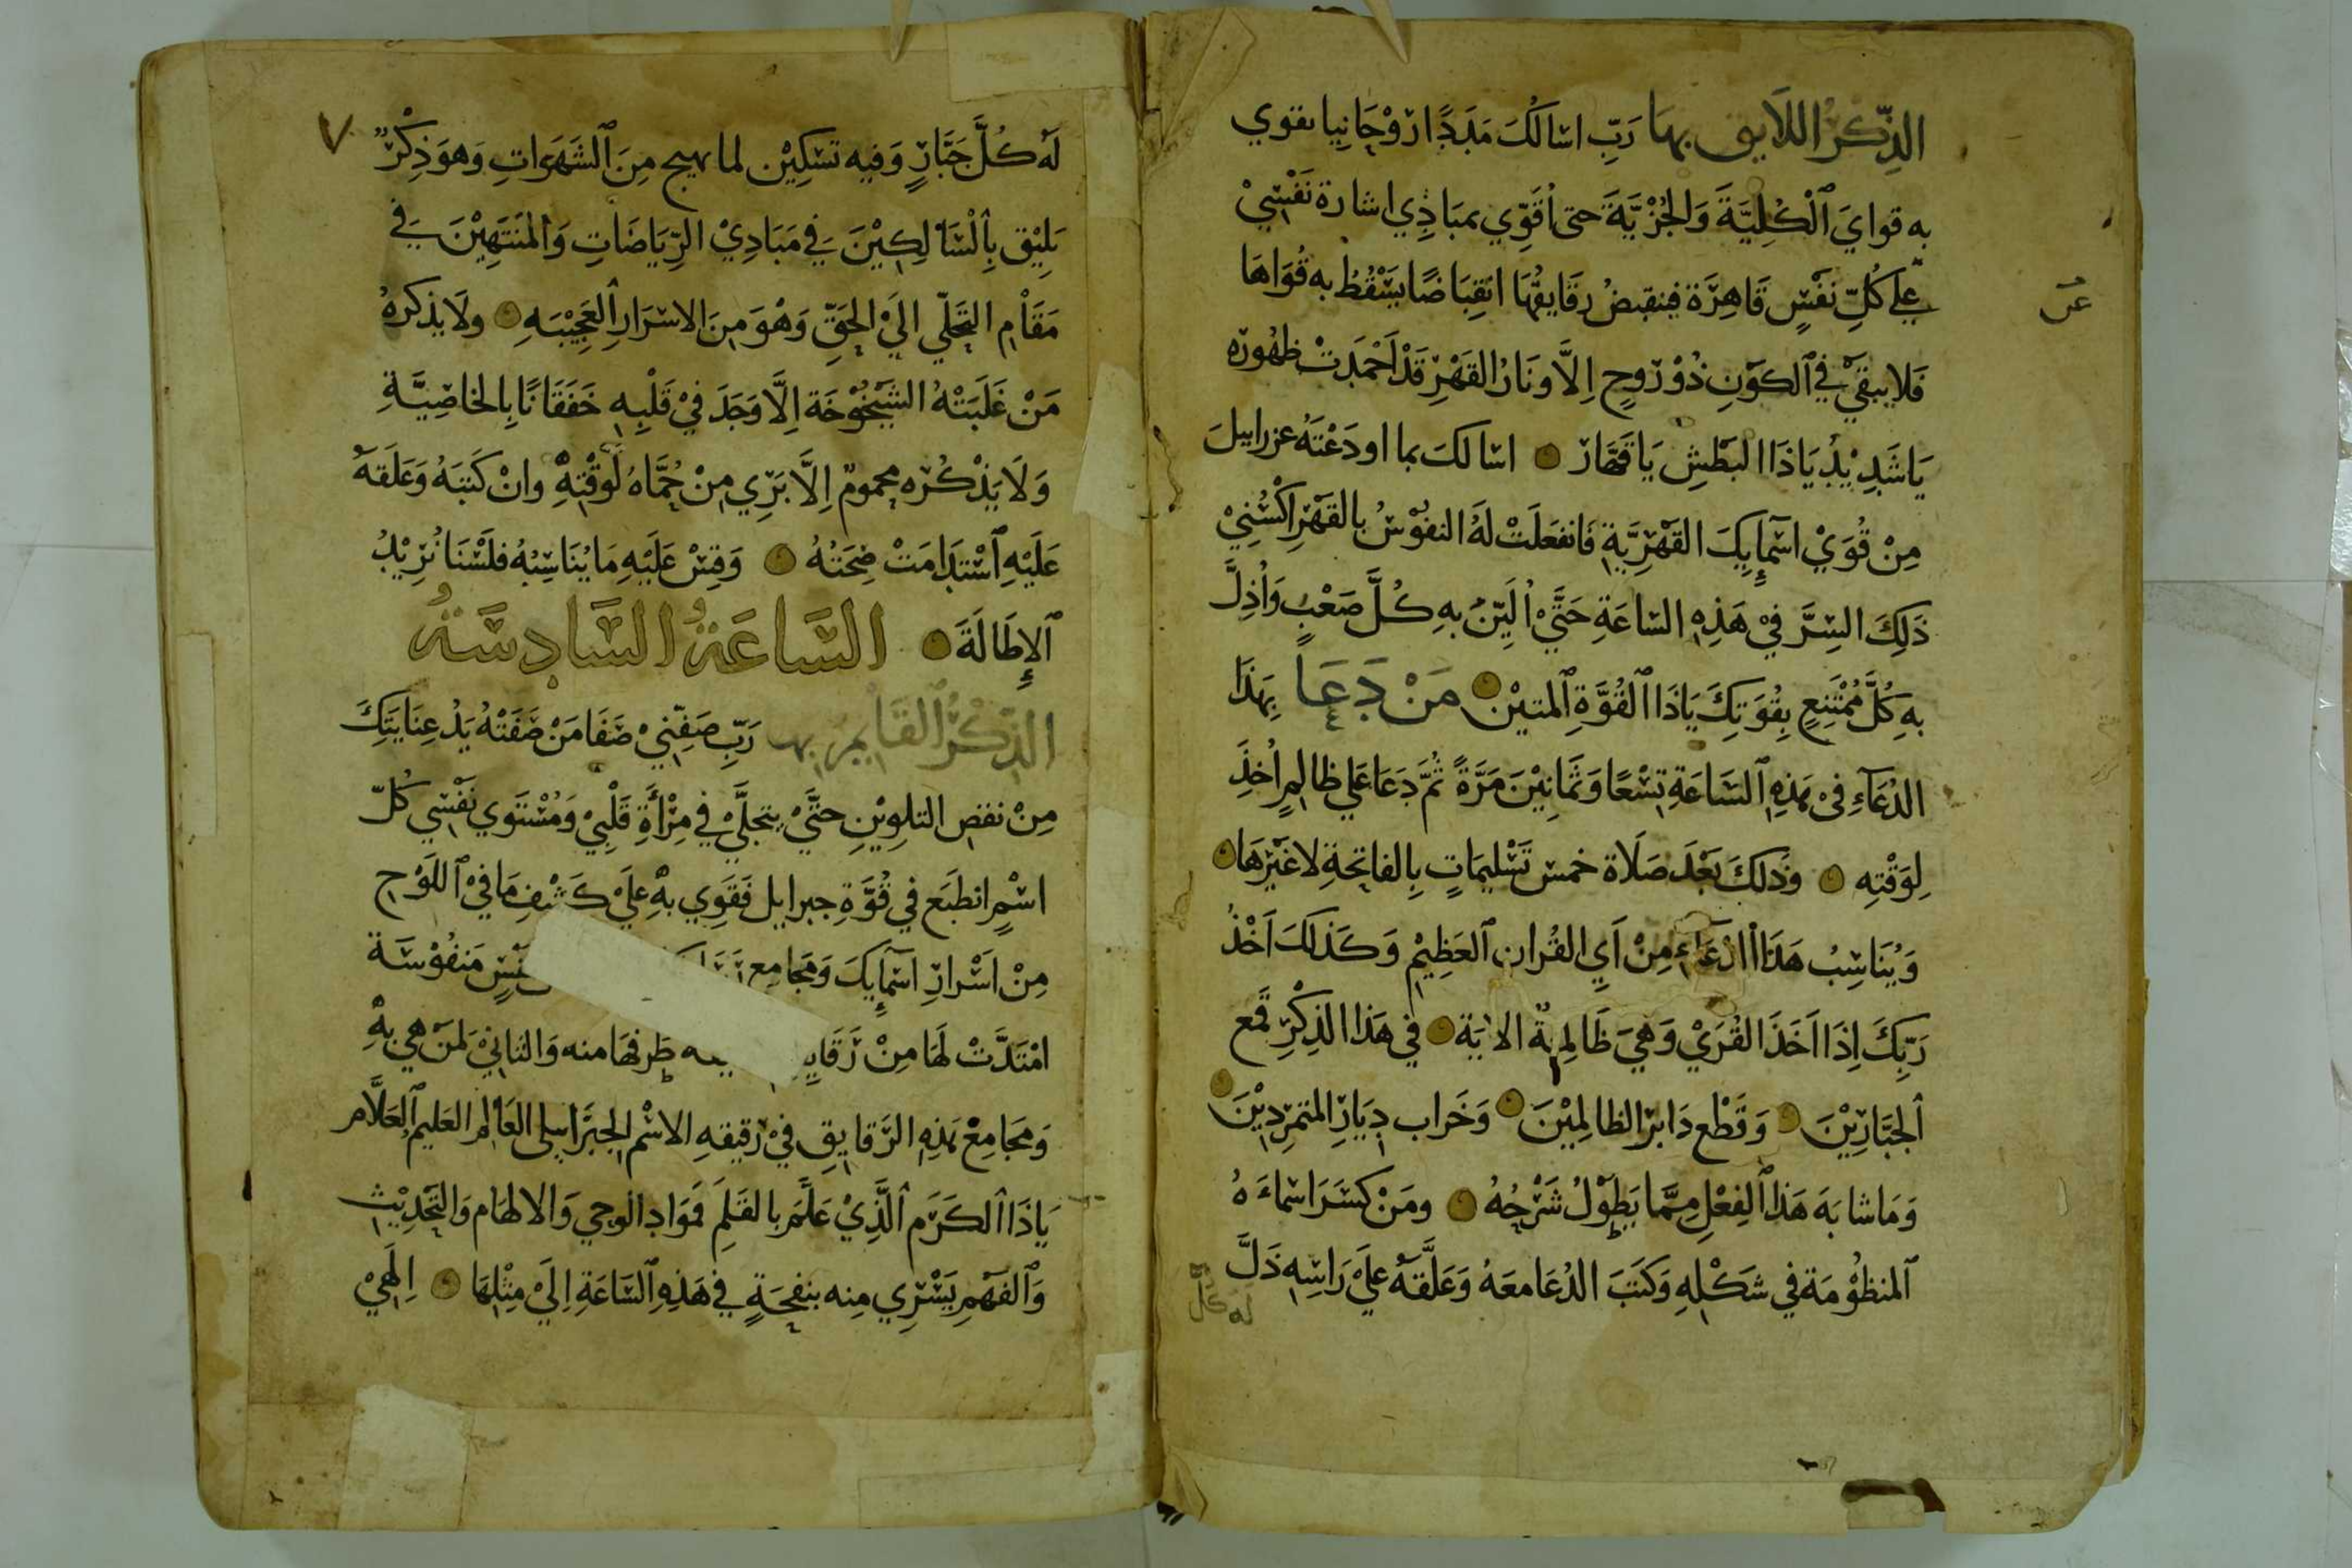 الذِّكرُ اللَايق بِهَا رَبِّ اسْالكَ مَدَدًا رُوْحَانِيا تقوي
به قوايَ ٱلْكُلِيَّةَ وَالجُزْيَّةَ حتى اُقَوِّي بمبَادِي اشارة نَفْسِيْ
عن
علي كُلِّ نَفْسٍ قَاهِرَة فينقبضُ رقَايقُهَا انقِبَاضًا يَسْقُطُ به قُوَاهَا
فَلا يبقَيْ في ٱلكوَنِ ذُوْ رُوحٍ اِلَّا وَنَارُ القَهْرِ قَدْ اَخْمَدَتْ ظهُورَه
يَا شَدِيْدُ يَاذَا البَطْشِ يَا قَهَّارُ اسْالكَ بما اودَعْتَهُ عزراييلَ
مِنْ قُوَيْ اسْمَإيِكَ القَهْرِيَّةِ فَانفعَلَتْ لَهُ النفُوْسُ بالقَهْرِ اكْسُنِيْ
ذَلِكَ السِّرَّ فِيْ هَذِهِ السَّاعَةِ حَتَّيْ اُلَيِّنَ بهِ كُلَّ صَعْبٍ وَاُذِلَّ
بهِ كُلَّ مُمْتَنِعٍ بِقُوَتِكَ يَاذَا ٱلقُوَّةِ ٱلمتيْن مَنْ دَعَا بِهَذَا
الدُعَآءِ فِىْ هَذِهِ ٱلسَّاعَةِ تِسْعًا وَثَمانِيْنَ مَرَّةً ثُمَّ دَعَا عَلي ظالمٍ اُخِذَ
لِوَقْتِهِ وذَلكَ بَعْدَ صَلَاة خمس تَسْليمَاتٍ بِالفاتِحَةِ لا غَيْرَهَا
وَيُنَاسِبُ هَذَا الدُعَآءِ مِنْ اَيِ القُران ٱلعَظِيْمِ وَكَذلكَ اَخْذُ
رَبِّكَ اِذَا اَخَذَ القُرَيْ وَهِيَ ظَالِمةٌ الايَة في هَذا الذِكْرِ قَمع
ٱلجَبَّارِيْنَ وَقَطْع دَابرَ الظالِمِيْنَ وَخَراب دِيَارِ المتمَرِدِيْنَ
وَمَا شابَهَ هَذا ٱلفِعْلِ مِمَّا يَطوْلُ شَرْحُهُ ومَنْ كسَرَ اسْمَاءَهُ
ٱلمنظُوْمَة في شكْلهِ وَكتَبَ الدُعَا معَهُ وَعَلَّقهُ عَليَ رَاسِهِ ذَلَّ
له كلّ
٧
لَهُ كُلَّ جَبَّارٍ وَفيه تَسْكِيْن لما يهيج مِنَ ٱلشَهَوَاتِ وَهوَ ذِكْرٌ
يَلِيْق بِٱلسَّالِكِيْنَ فِي مَبَادِيْ الرِّيَاضَاتِ وَالمنتَهِيْنَ فِي
مَقَامِ التجَلِّي اِلَيْ الحَقِّ وَهْوَ مِنَ الاسْرَارِ ٱلعَجِيْبَهِ ولَا يذكرهُ
مَنْ غَلَبَتْهُ الشيْخُوْخَة اِلَّا وَجَدَ فيْ قَلْبِهِ خَفَقَانًا بِالخاصِيَّةِ
وَلَا يَذْكُرْه مَحمومٌ اِلَّا بَرِي مِنْ حُمَّاهُ لوَقْتِهِ وانْ كَتبَهُ وَعَلَقهُ
عَلَيْهِ ٱسْتَدَامَتْ صِحَتُهُ وَقِسْ عَلَيْهِ مَا يُنَاسِبُهُ فلَسْنَا نُرِيْدُ
ٱلإطَالَةَ السَّاعَةُ السَّادِسَةُ
الذِّكْرُ القَايمُ بها رَبِّ صَفِّنِيْ صَفَا مَنْ صَفَتْهُ يَدُ عِنَايَتِكَ
مِنْ نقص التلوِيْنِ حتَّيْ يتجلَّيْ في مِرْأَةِ قَلْبِيْ وَمُسْتَوي نَفْسِي كُلّ
اسْمٍ انطبَع في قُوَّةِ جبراييل فَقَوِي بهِ عَليَ كَشْفِ مَا فيْ ٱللَوْحِ
مِنْ اَسْرارِ اسْمَإيِكَ وَمَجَامِع نَفْسٍ مَنفُوْسَة
امْتَدَّتْ لَهَا مِنْ رَقَايِ طرفهَا منه وَالثاني لمَن هي بهِ
وَمَجَامِعْ هَذِهِ الرَّقايِقِ فيْ رَقيقهِ الاسْم الجبرَاييلي العَالم العَليم ٱلعَلَّام
يَاذَا ٱلكَرَم ٱلَّذِيْ عَلَّمَ بالقَلمِ فَوَاد الوحي وَالالهَام وَالتَحْدِيْثِ
وَٱلفهْمِ يَسْرِي منه بنفحَةٍ في هَذِهِ ٱلسَّاعَةِ اِلَيْ مِثْلِهَا اِلَهِيْ